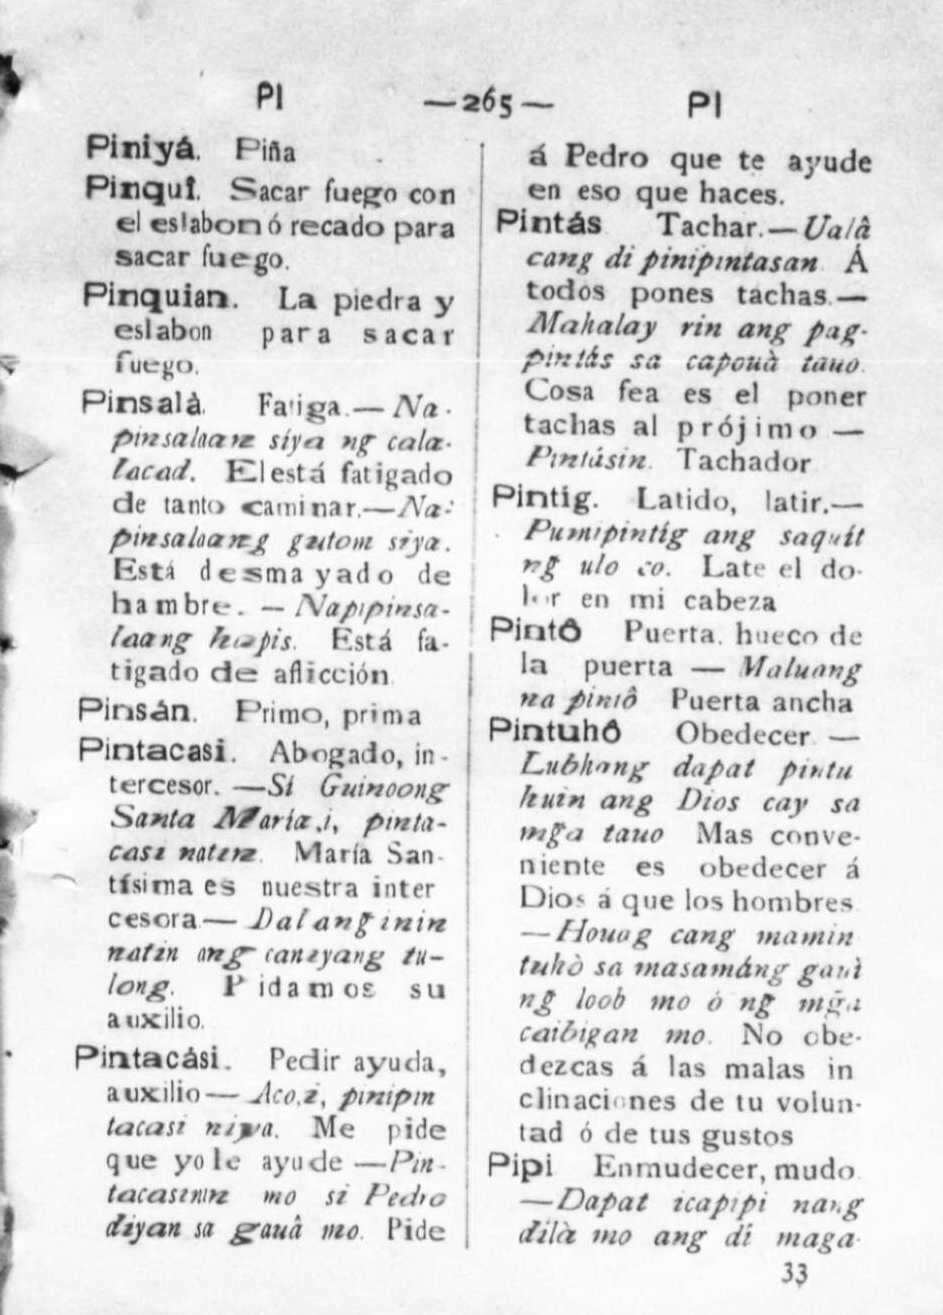 PI —265— PI
Piniyá. Piña
Pinquî. Sacar fuego con
el eslabon ó recado para
sacar fuego.
Pinquian. La piedra y
eslabon para sacar
fuego.
Pinsalà. Fatiga.—Na-
pinsalaan siya ng cala-
lacad. El está fatigado
de tanto caminar.—Na-
pinsalaang gutom siya.
Está desmayado de
hambre. — Napipinsa-
laang hapis. Está fa-
tigado de aflicción.
Pinsán. Primo, prima
Pintacasi. Abogado, in-
tercesor. —Si Guinoong
Santa María,i, pinta-
casi natin. María San-
tísima es nuestra inter
cesora— Dalanginin
natin ang caniyang tu-
long. Pidamos su
auxilio.
Pintacási. Pedir ayuda,
auxilio— Aco,i, pinipin
tacasi niya. Me pide
que yo le ayude —Pin-
tacasinin mo si Pedro
diyan sa gauâ mo. Pide
á Pedro que te ayude
en eso que haces.
Pintás Tachar.— Ualâ
cang di pinipintasan. Á
todos pones tachas.—
Mahalay rin ang pag-
pintás sa capouà tauo.
Cosa fea es el poner
tachas al prójimo —
Pintásin. Tachador
Pintig. Latido, latir.—
Pumipintíg ang saquít
ng ulo co. Late el do-
lor en mi cabeza
Pintô Puerta. hueco de
la puerta — Maluang
na pintô Puerta ancha
Pintuhô Obedecer. —
Lubhang dapat pintu
huin ang Dios cay sa
mg̃a tauo Mas conve-
niente es obedecer á
Dios á que los hombres
—Houag cang mamin
tuhò sa masamáng gauì
ng loob mo ò ng mg̃a
caibigan mo. No obe-
dezcas á las malas in
clinaciones de tu volun-
tad ó de tus gustos
Pipi Enmudecer, mudo.
—Dapat icapipi nang
dilà mo ang dî maga-
33